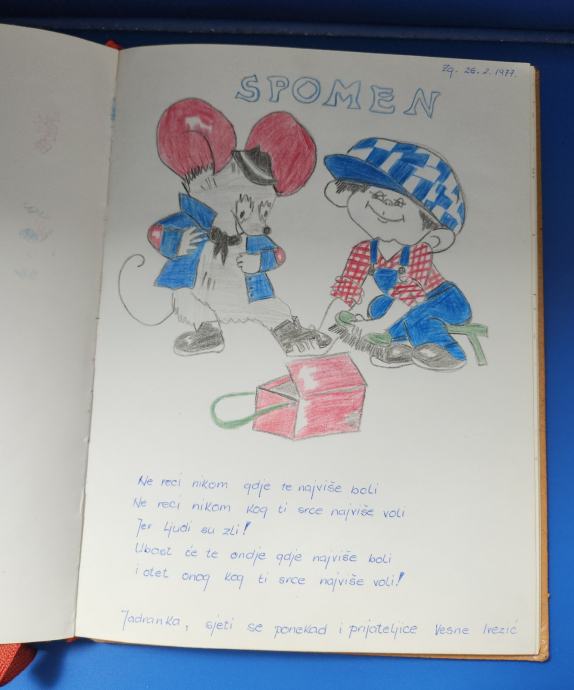 Zg. 26.2.1977.
SPOMEN
Ne reci nikom gdje te najviše boli
Ne reci nikom kog ti srce najviše voli
Jer ljudi su zli!
Ubost će te ondje gdje najviše boli
i otet onog kog ti srce najviše voli!
Jadranka, sjeti se ponekad i prijateljice Vesne Ivezić